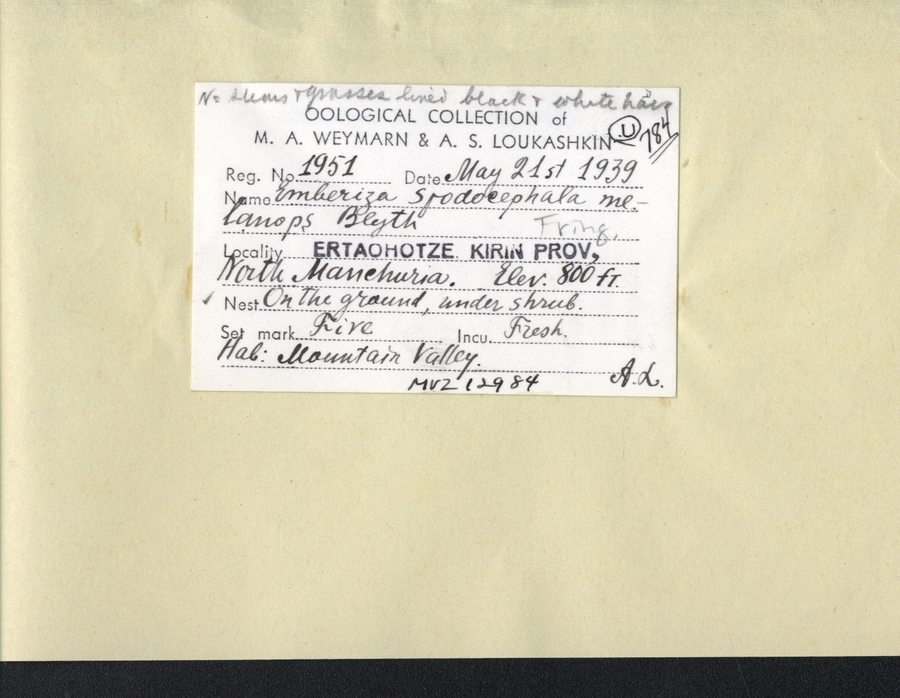 N= stems & grasses lined black & white hair
OOLOGICAL COLLECTION of
M. A. WEYMARN & A. S. LOUKASHKIN U 784
Reg. No. 1951 Date May 21st 1939
Name Emberiza spodocephala me-
lanops Blyth Fring.
Locality ERTAOHOTZE KIRIN PROV,
North Manchuria. Elev. 800 ft.
Nest On the ground, under shrub.
Set mark Five Incu. Fresh.
Hab: Mountain Valley.
MVZ 12984 A.L.